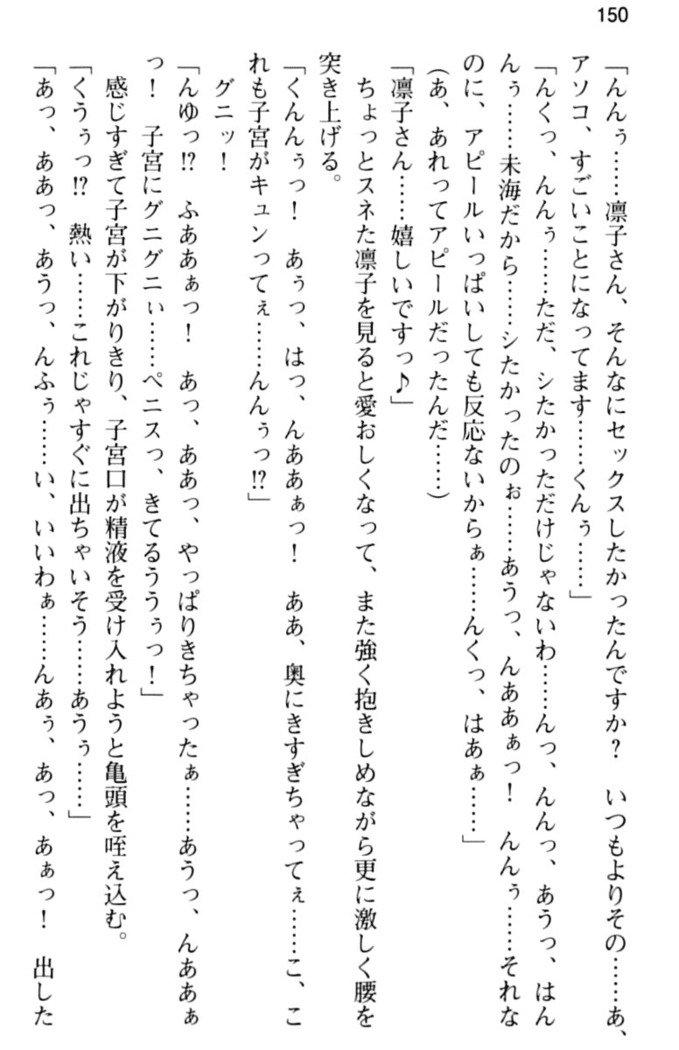 150
「んんぅ……凛子さん、そんなにセックスしたかったんですか？　いつもよりその……あ、
アソコ、すごいことになってます……くんぅ……」
「んくっ、んんぅ……ただ、シたかっただけじゃないわ……んっ、んんっ、あうっ、はん
んぅ……未海だから……シたかったのぉ……あうっ、んああぁっ！　んんぅ……それな
のに、アピールいっぱいしても反応ないからぁ……んくっ、はあぁ……」
(あ、あれってアピールだったんだ……)
「凛子さん……嬉しいですっ♪」
　ちょっとスネた凛子を見ると愛おしくなって、また強く抱きしめながら更に激しく腰を
突き上げる。
「くんんぅっ！　あぅっ、はっ、んああぁっ！　ああ、奥にきすぎちゃってぇ……こ、こ
れも子宮がキュンってぇ……んんぅっ!?」
　グニッ！
「んゆっ!?　ふああぁっ！　あっ、ああっ、やっぱりきちゃったぁ……あうっ、んああぁ
っ！　子宮にグニグニぃ……ペニスっ、きてるううぅっ！」
　感じすぎて子宮が下がりきり、子宮口が精液を受け入れようと亀頭を咥え込む。
「くうぅっ!?　熱い……これじゃすぐに出ちゃいそう……あうぅ……」
「あっ、ああっ、あうっ、んふぅ……い、いいわぁ……んあぅ、あっ、あぁっ！　出した